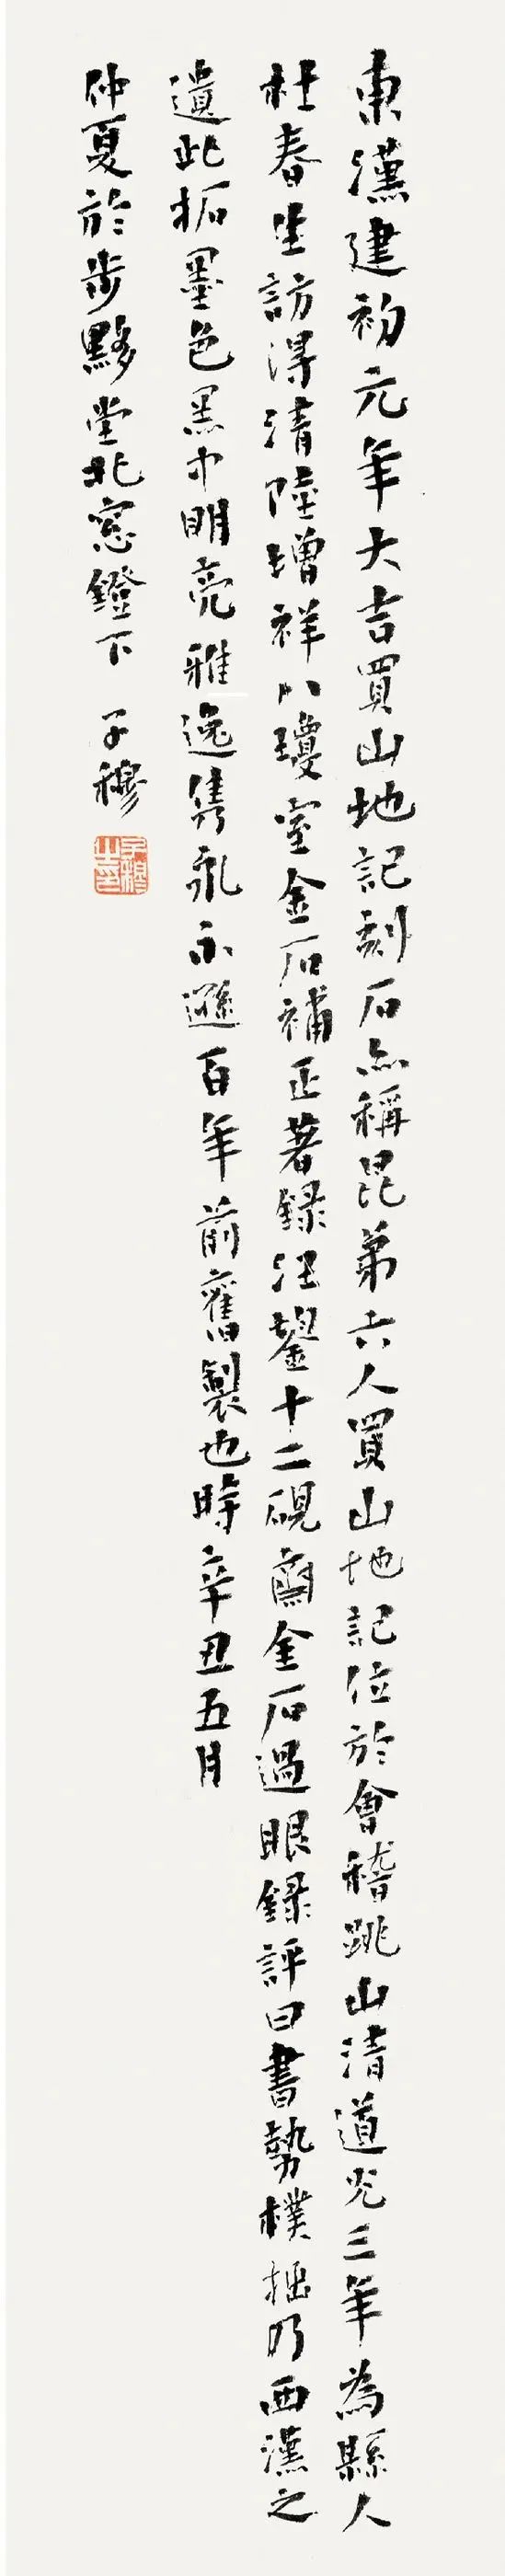 東漢建初元年大吉買山地記刻石亦稱昆弟六人買山地記位於會稽跳山清道光三年為縣人
杜春生訪得清陸增祥八瓊室金石補正著録汪鋆十二硯齋金石過眼錄評曰書勢樸拙乃西漢之
遺此拓墨色黑中明亮雅逸雋永不遜百年前舊製也時辛丑五月
仲夏於步黟堂北窗鐙下 子穆
子穆之印